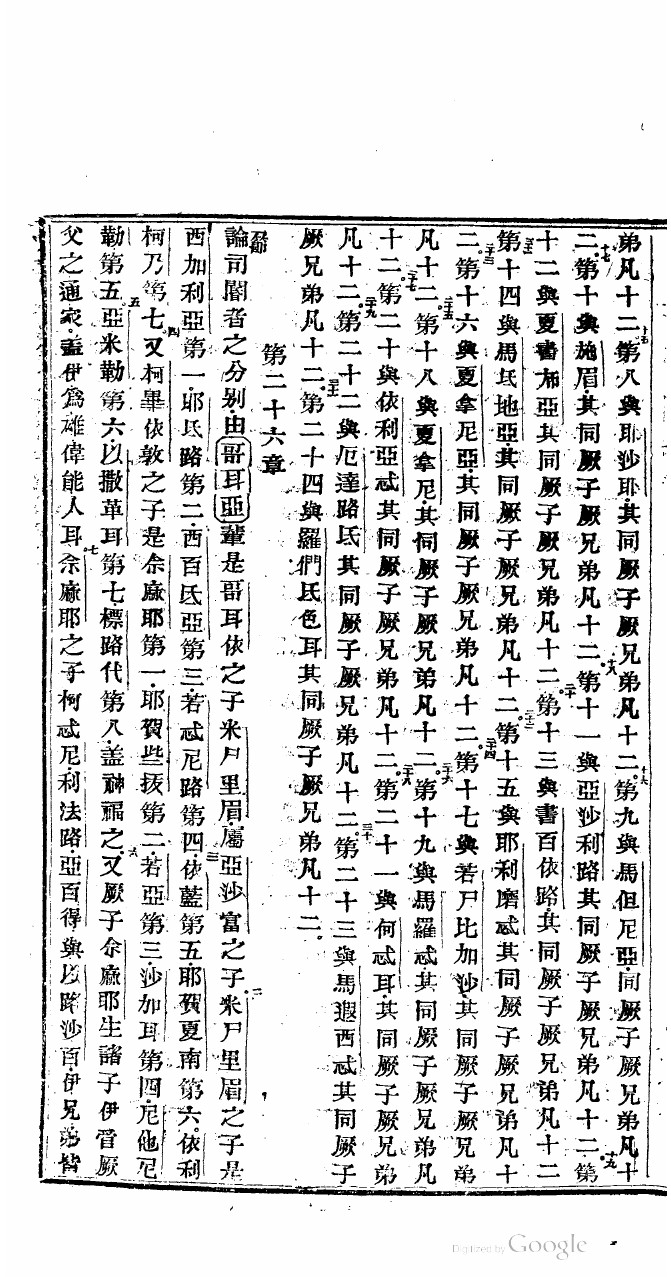 弟凡十二。十五第八與耶沙耶其同厥子厥兄弟凡十二。十六第九與馬但尼亞同厥子厥兄弟凡十
二。十七第十與施眉其同厥子厥兄弟凡十二。十八第十一與亞沙利路其同厥子厥兄弟凡十二。十九第
十二與夏書布亞其同厥子厥兄弟凡十二。二十第十三與書百依路其同厥子厥兄弟凡十二
第十四與馬氐地亞其同厥子厥兄弟凡十二。第十五與耶利磨忒其同厥子厥兄弟凡十
二。第十六與夏拿尼亞其同厥子厥兄弟凡十二。第十七與若尸比加沙其同厥子厥兄弟
凡十二。第十八與夏拿尼其同厥子厥兄弟凡十二。第十九與馬羅忒其同厥子厥兄弟凡
十二。第二十與依利亞忒其同厥子厥兄弟凡十二。第二十一與何忒耳其同厥子厥兄弟
凡十二。第二十二與厄達路氐其同厥子厥兄弟凡十二。三十第二十三與馬遐西忒其同厥子
厥兄弟凡十二。第二十四與羅們氐色耳其同厥子厥兄弟凡十二
第二十六章
論司閽者之分别由哥耳亞輩是哥耳依之子米尸里眉屬亞沙富之子二米尸里眉之子是
西加利亞第一耶氐路第二西百氐亞第三若忒尼路第四三依藍第五耶賀夏南第六依利
柯乃第七四又柯畢依敦之子是余麻耶第一耶賀些拔第二若亞第三沙加耳第四尼他尼
勒第五五亞米勒第六以撒革耳第七標路代第八盖神福之六又厥子余麻耶生諸子伊管厥
父之通家盖伊為雄偉能人耳七余麻耶之子柯忒尼利法路亞百得與以路沙百伊兄弟皆
Digitized by Google